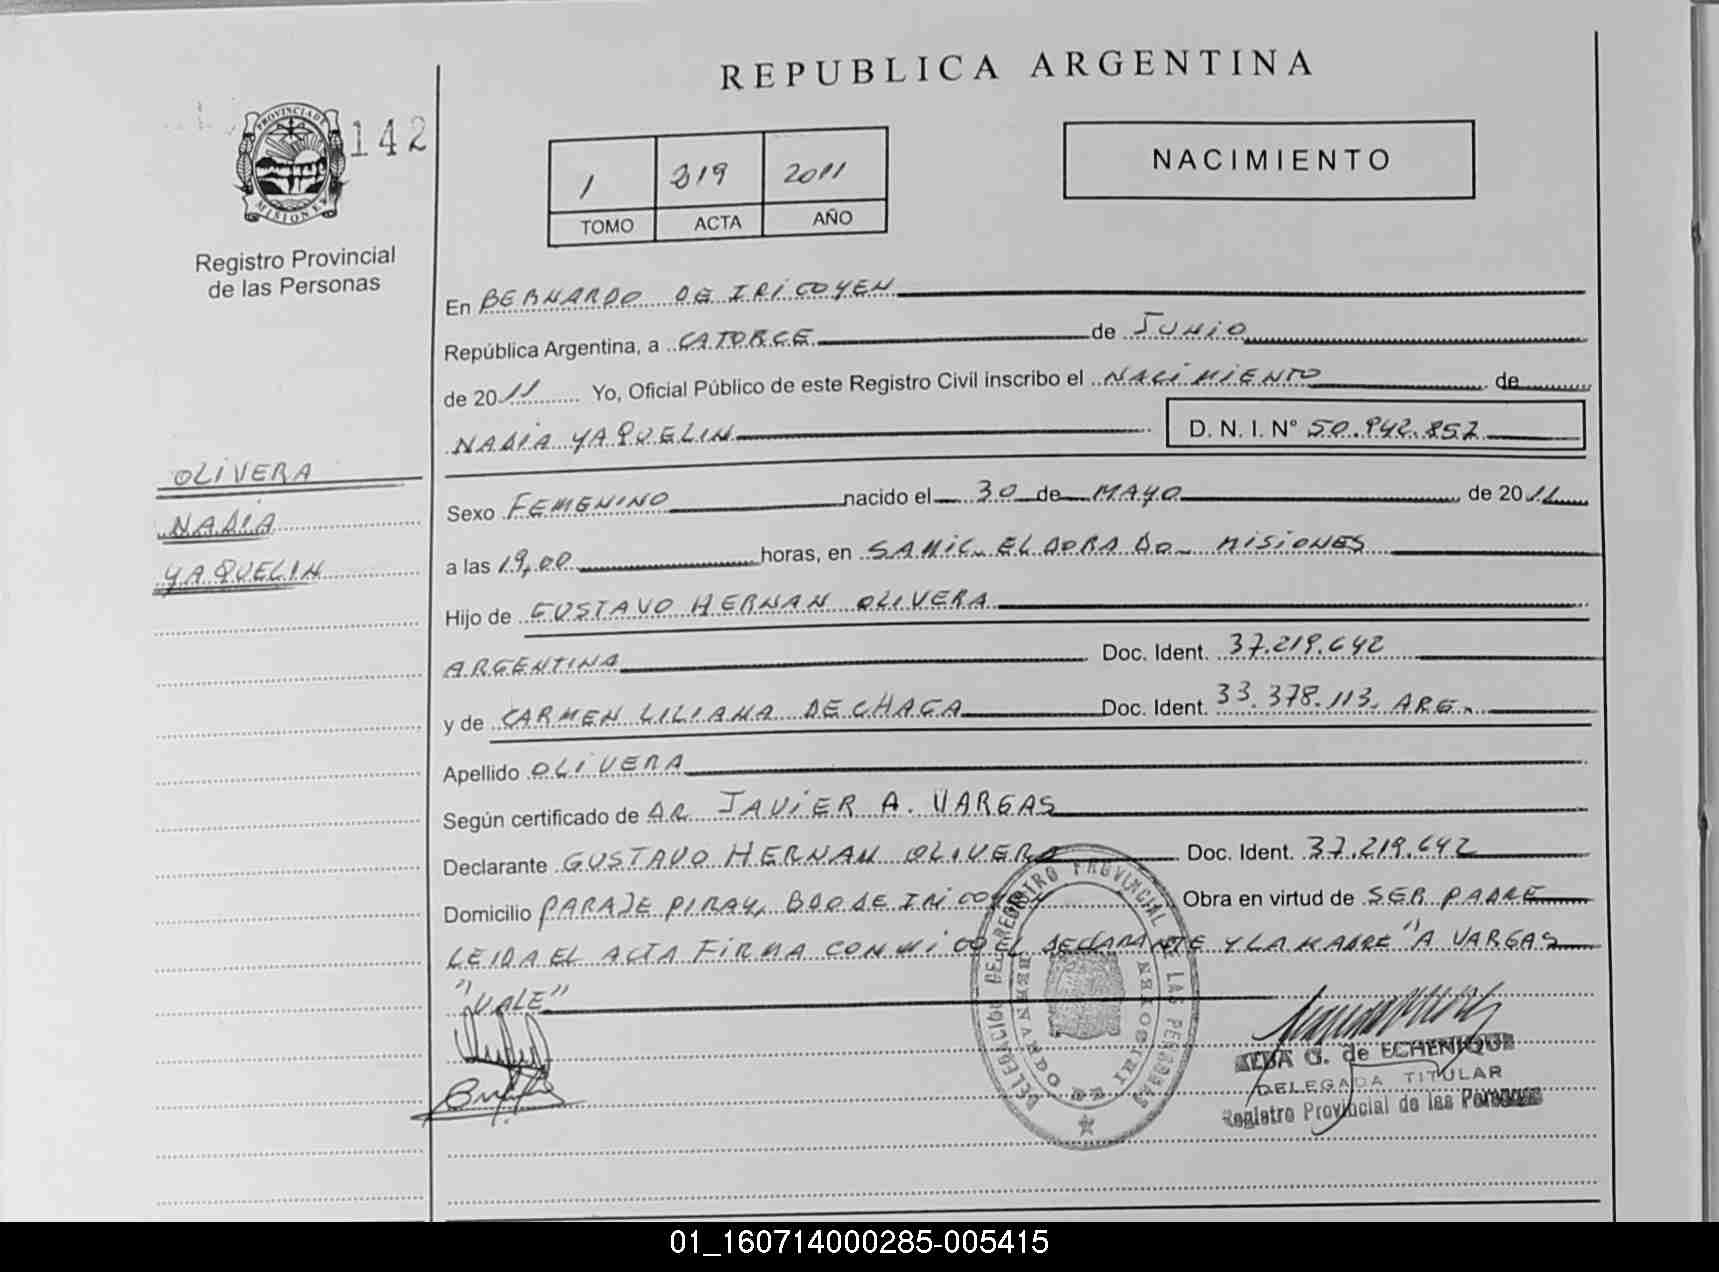 REPUBLICA ARGENTINA
PROVINCIA DE
MISIONES
142
Registro Provincial
de las Personas
1 319 2011
TOMO ACTA AÑO
NACIMIENTO
En BERNARDO DE IRIGOYEN
República Argentina, a CATORCE de JUNIO
de 2011 Yo, Oficial Público de este Registro Civil inscribo el NACIMIENTO de
NADIA YAQUELIN D. N. I. N° 50.942.852
OLIVERA
NADIA
YAQUELIN
Sexo FEMENINO nacido el 30 de MAYO de 2011
a las 19,00 horas, en SAMIC. ELDORADO - MISIONES
Hijo de GUSTAVO HERNAN OLIVERA
ARGENTINA Doc. Ident. 37.219.642
y de CARMEN LILIANA DECHAGA Doc. Ident. 33.378.113. ARG.
Apellido OLIVERA
Según certificado de DR JAVIER A. VARGAS
Declarante GUSTAVO HERNAN OLIVERA Doc. Ident. 37.219.642
Domicilio PARAJE PIRAY, BDO DE IRIGOYEN Obra en virtud de SER PADRE
LEIDA EL ACTA FIRMA CONMIGO EL DECLARANTE Y LA MADRE "A VARGAS
"VALE"
DELEGACION DEL REGISTRO PROVINCIAL DE LAS PERSONAS
BERNARDO DE IRIGOYEN
ELBA G. de ECHENIQUE
DELEGADA TITULAR
Registro Provincial de las Personas
01_160714000285-005415